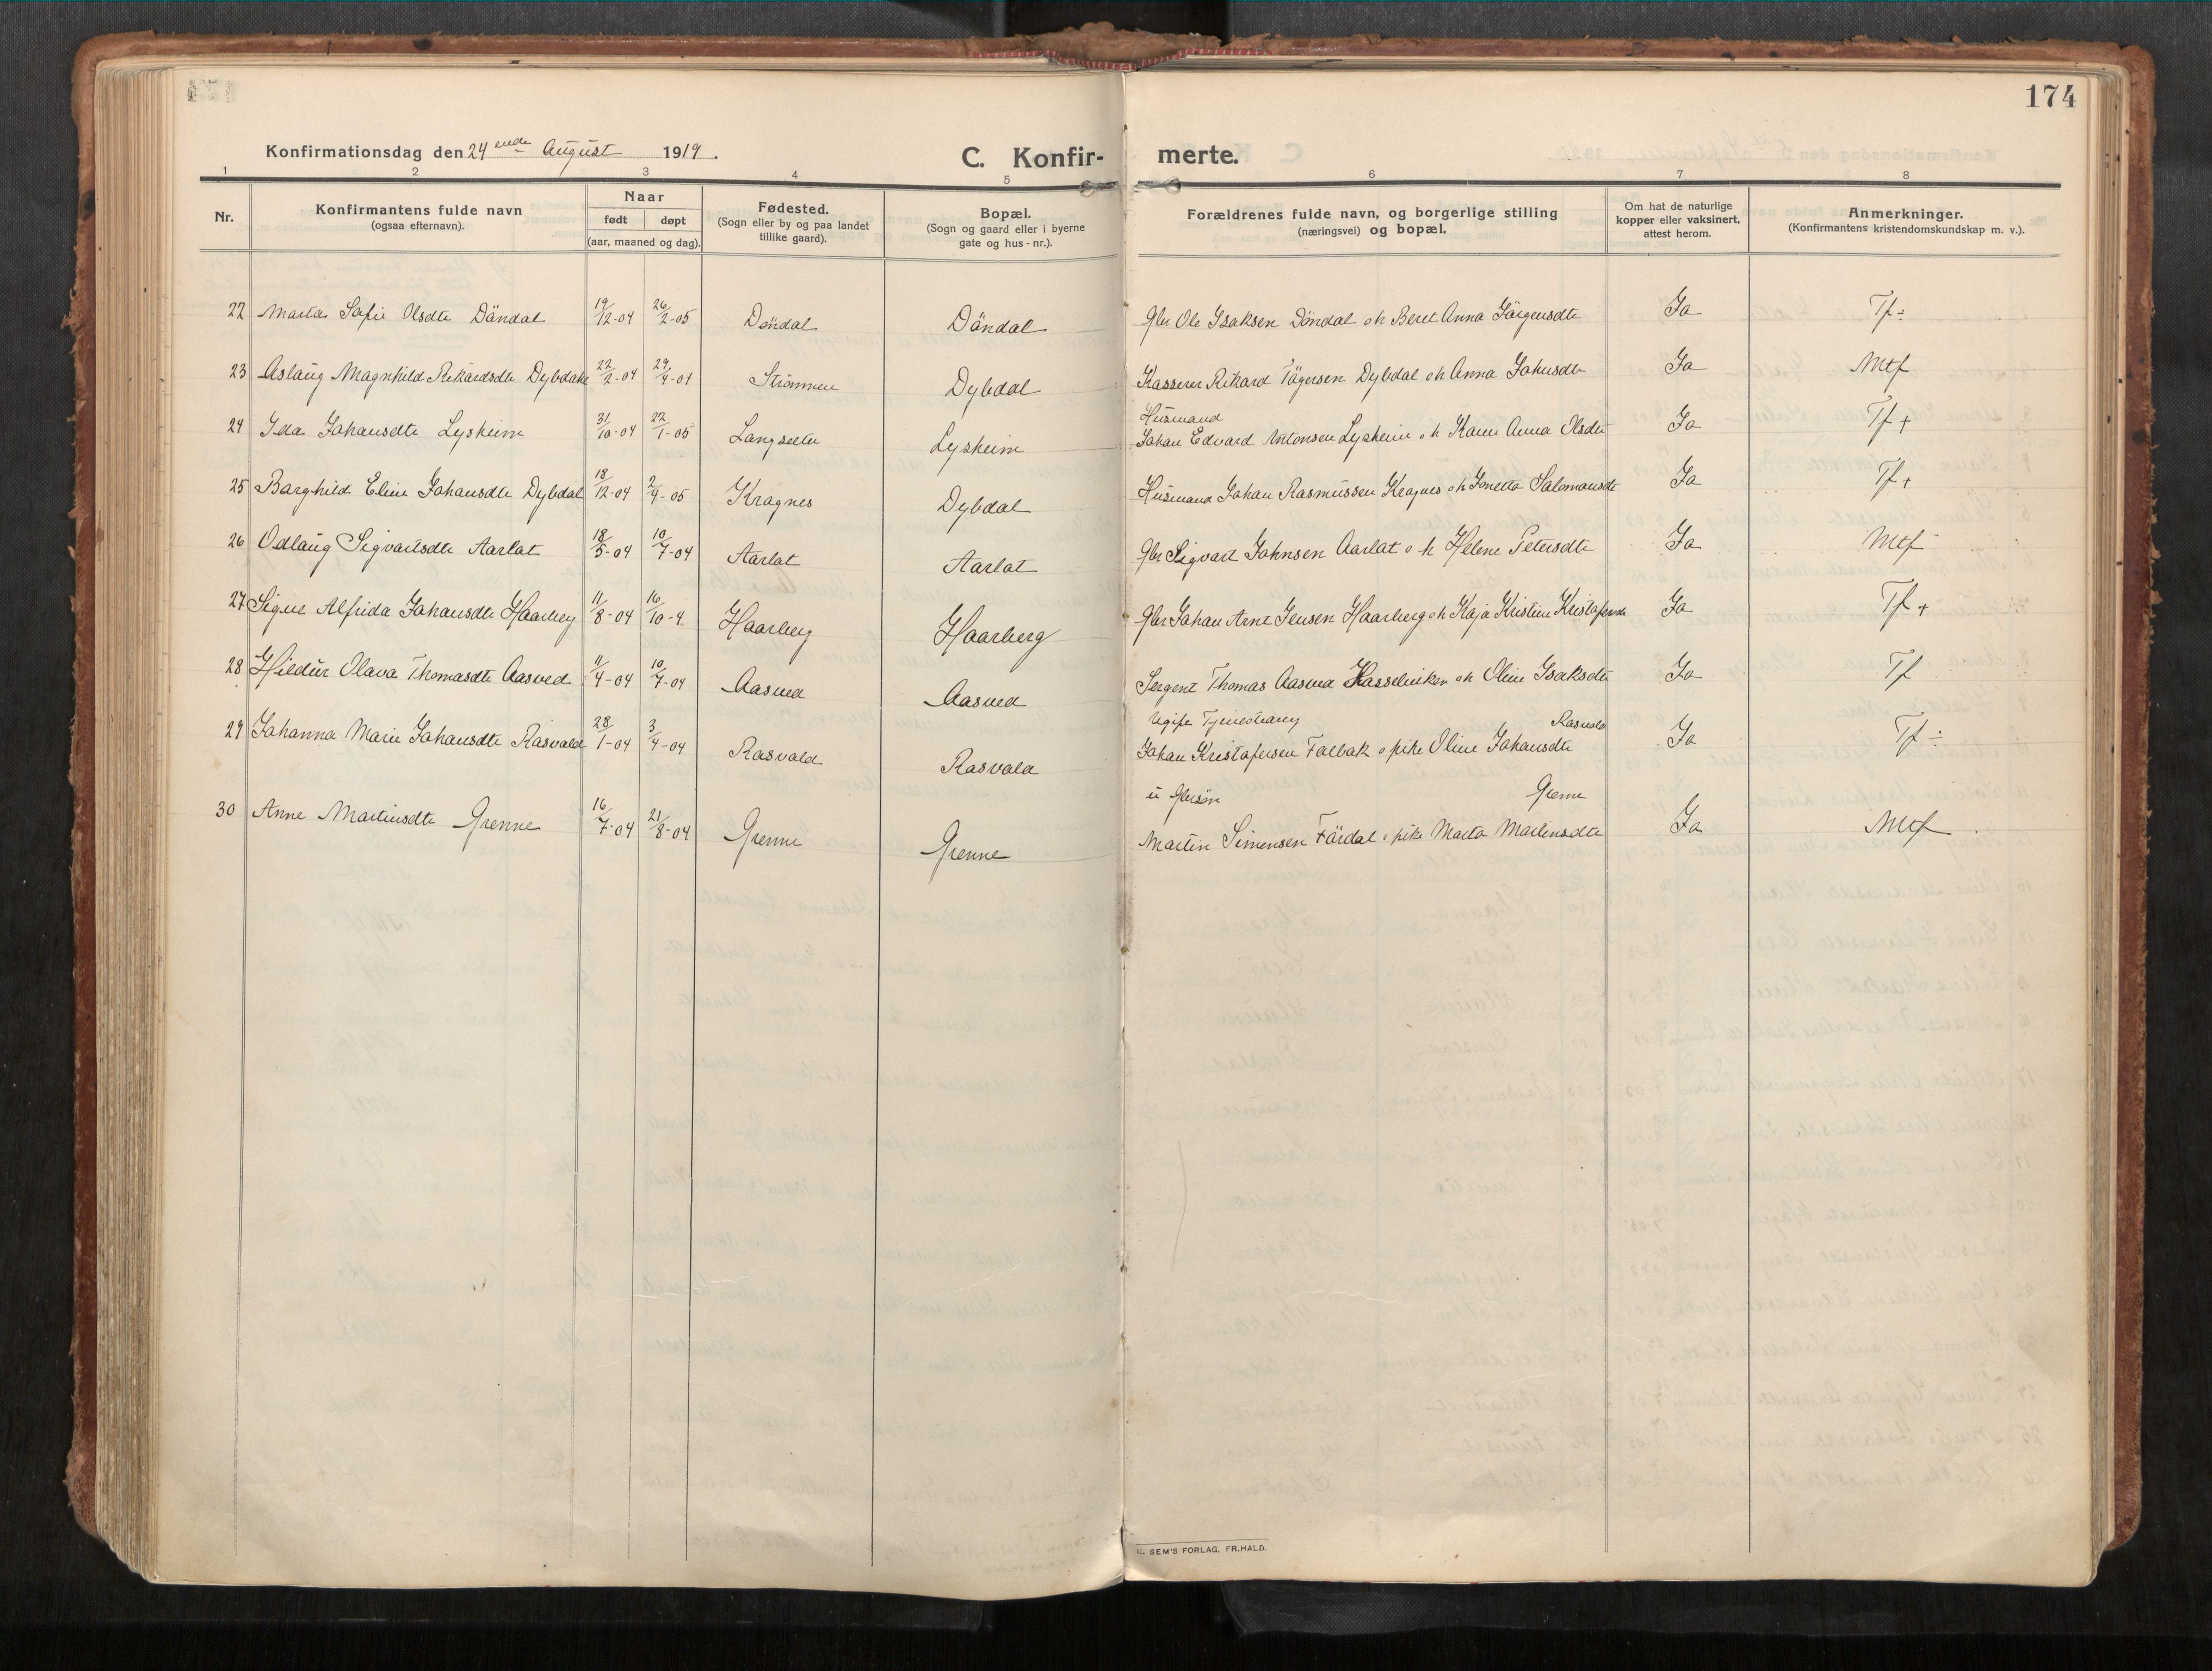 174
Konfirmationsdag den 24 ende August 1919.
C. Konfir- merte.
1 2 3 4 5 6 7 8
Nr.
Konfirmantens fulde navn
(ogsaa efternavn).
Naar
født døpt
(aar, maaned og dag).
Fødested.
(Sogn eller by og paa landet
tillike gaard).
Bopæl.
(Sogn og gaard eller i byerne
gate og hus-nr.).
Forældrenes fulde navn, og borgerlige stilling
(næringsvei) og bopæl.
Om hat de naturlige
kopper eller vaksinert,
attest herom.
Anmerkninger.
(Konfirmantens kristendomskundskap m. v.).
22 Marta Sofie Olsdtr Döndal 19/12-04 26/2-05 Döndal Döndal Gbr Ole Isaksen Döndal o h Beret Anna Jörgensdtr Ja Tf÷
23 Aslaug Magnhild Rikardsdtr Dybdahl 22/2-04 24/4-04 Strömmen Dybdal Kasserer Rikard Tögersen Dybdal o h Anna Johnsdtr Ja Mtf
Husmand
24 Ida Johansdtr Lysheim 31/10-04 22/1-05 Langseeter Lysheim Johan Edvard Antonsen Lysheim o h Karen Anna Olsdtr Ja Tf+
25 Borghild Eline Johansdtr Dybdal 18/12-04 2/4-05 Kragnes Dybdal Husmand Johan Rasmussen Kragnes o h Jonetta Salomonsdtr Ja Tf+
26 Odlaug Sigvartsdtr Aarlot 18/5-04 10/7-04 Aarlot Aarlot Gbr Sigvart Johnsen Aarlot o h Helene Petersdtr Ja Mtf
27 Signe Alfrida Johansdtr Haarberg 11/8-04 16/10-4 Haarberg Haarberg Gbr Johan Arnt Jensen Haarberg o h Kaja Kristine Kristofersdtr Ja Tf+
28 Hildur Olava Thomasdtr Aasved 11/4-04 10/7-04 Aasved Aasved Sergent Thomas Aasved Hasselviken o h Oline Isaksdtr Ja Tf
Ugifte Rasvold
29 Johanna Marie Johansdtr Rasvold 28/1-04 3/4-04 Rasvold Rasvold Johan Kristofersen Falbak o pike Oline Johansdtr Ja Tf÷
u Gbrsön Grenne
30 Anne Martinsdtr Grenne 16/7-04 21/8-04 Grenne Grenne Martin Simensen Fördal o pike Marta Martinsdtr Ja Mtf
SEM'S FORLAG, FR.HALD.